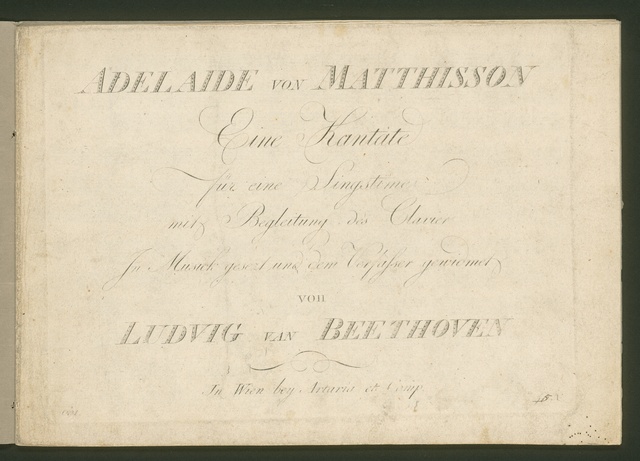 ADELAIDE VON MATTHISSON
Eine Kantate
für eine Singstime
mit Begleitung des Clavier
In Musick gesezt und dem Verfasser gewidmet
von
LUDVIG VAN BEETHOVEN
In Wien bey Artaria et Comp.